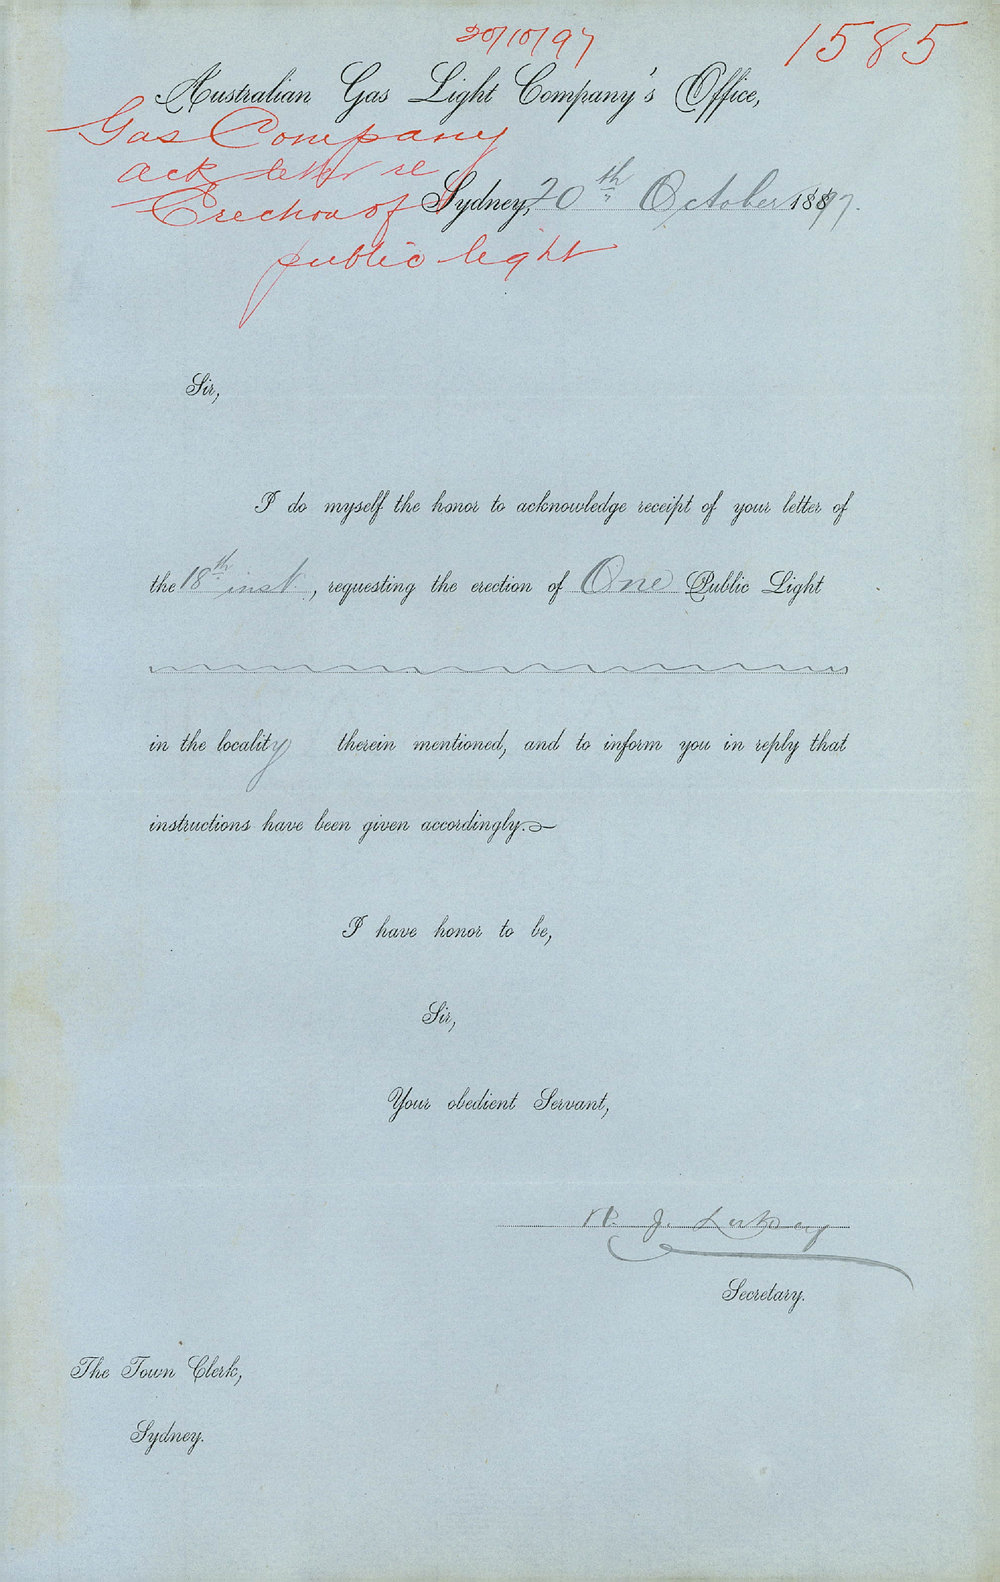 20/10/97
1585
Australian Gas Light Company's Office,
Gas Company
ack letter re
Erection of
public light
Sydney, 20th October 1897.
Sir,
I do myself the honor to acknowledge receipt of your letter of
the 18th inst., requesting the erection of One Public Light
in the locality therein mentioned, and to inform you in reply that
instructions have been given accordingly.
I have honor to be,
Sir,
Your obedient Servant,
Secretary.
The Town Clerk,
Sydney.